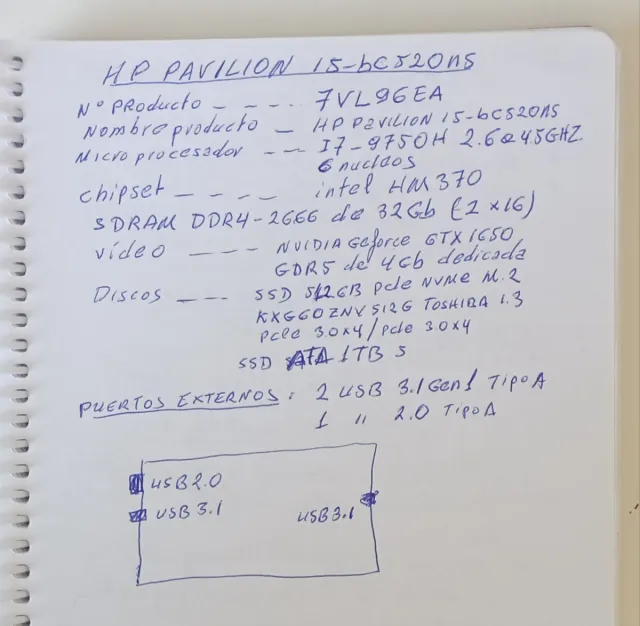 HP PAVILION 15-bC520nS
Nº PRODucto - - - - 7VL96EA
Nombre producto - HP PaVILION 15-bC520nS
Micro procesador - - - I7-9750H 2.6 a 4.5GHZ.
6 nucleos
Chipset - - - - intel HM370
SDRAM DDR4-2666 de 32Gb (2 x16)
video - - - - NVIDIA Geforce GTX 1650
GDR5 de 4Gb dedicada
Discos - - - SSD 512GB pcIe NVMe M.2
KXG60ZNV512G TOSHIBA 1.3
PCIe 3.0x4 / PcIe 3.0x4
SSD SATA 1TB S
PUERTOS EXTERNOS : 2 USB 3.1 Gen1 TipoA
1 " 2.0 TipoA
USB2.0
USB 3.1 USB3.1